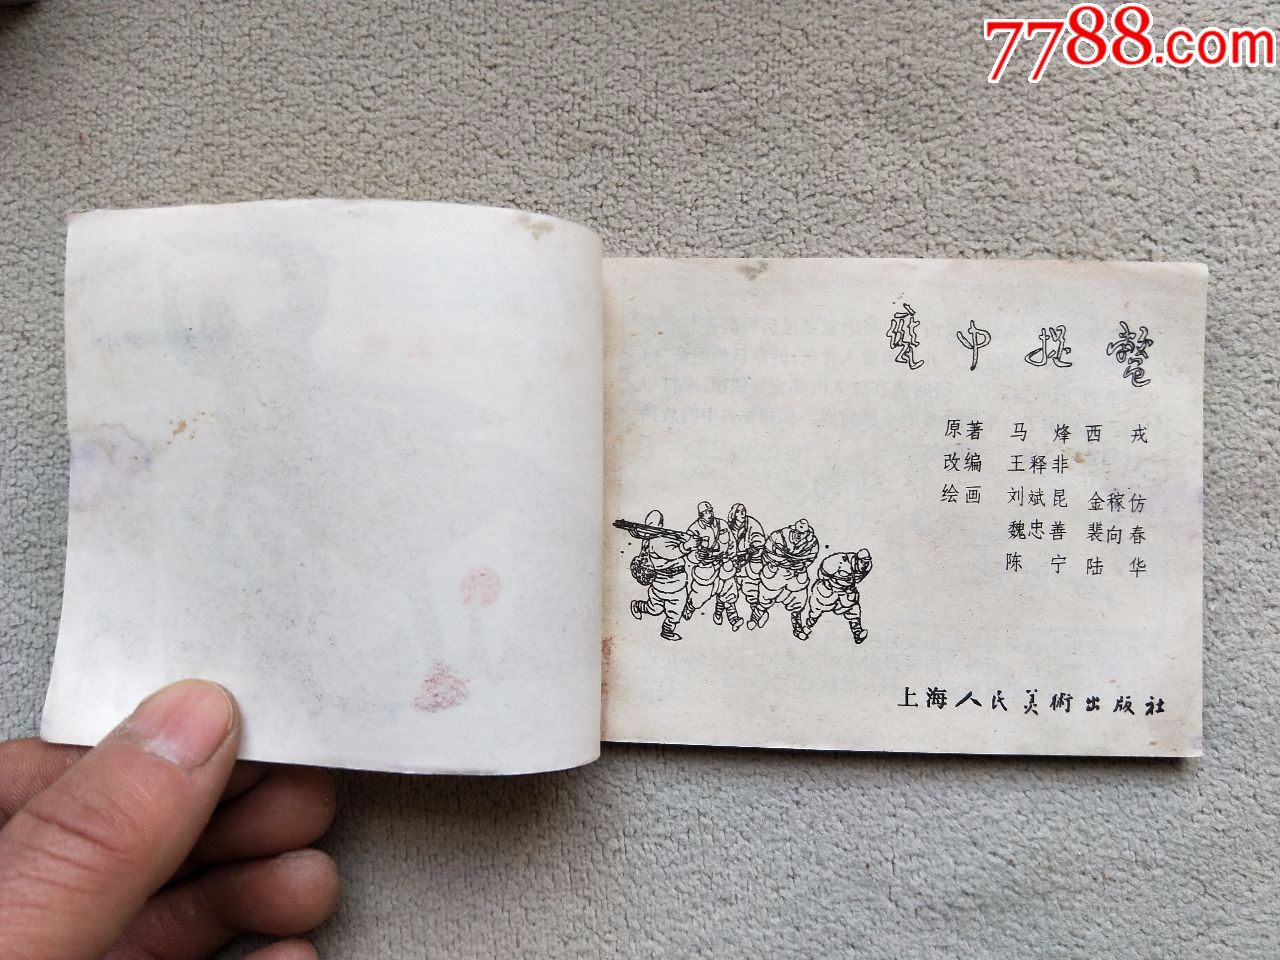 7788.com
瓮中捉鳖
原著 马烽 西戎
改编 王释非
绘画 刘斌昆 金稼仿
魏忠善 裴向春
陈宁 陆华
上海人民美術出版社